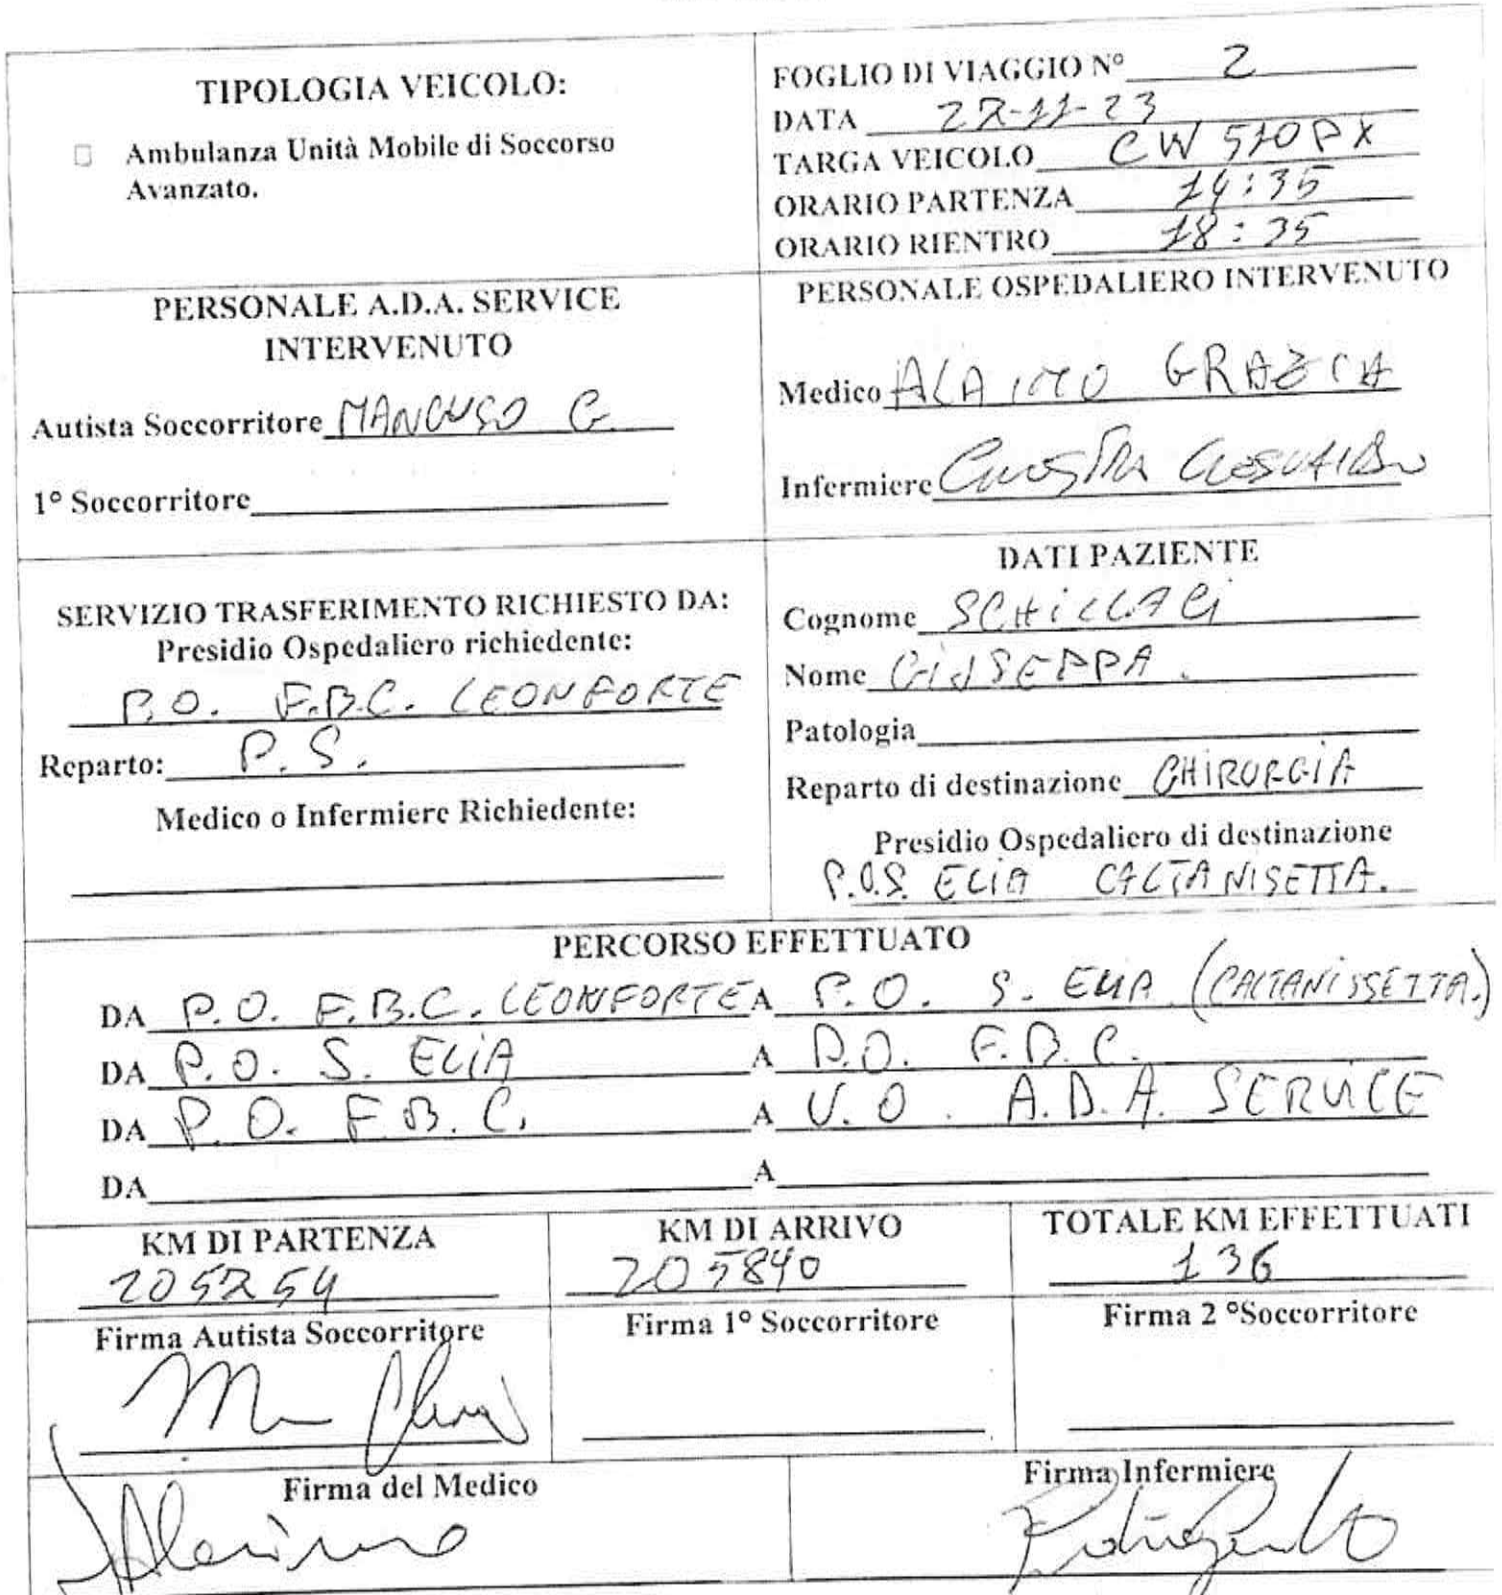 TIPOLOGIA VEICOLO:
Ambulanza Unità Mobile di Soccorso
Avanzato.
FOGLIO DI VIAGGIO N° 2
DATA 27-11-23
TARGA VEICOLO CW 510PX
ORARIO PARTENZA 14:35
ORARIO RIENTRO 18:35
PERSONALE A.D.A. SERVICE
INTERVENUTO
Autista Soccorritore MANCUSO G.
1° Soccorritore
PERSONALE OSPEDALIERO INTERVENUTO
Medico ALAIMO GRAZIA
Infermiere
SERVIZIO TRASFERIMENTO RICHIESTO DA:
Presidio Ospedaliero richiedente:
P.O. F.B.C. LEONFORTE
Reparto: P.S.
Medico o Infermiere Richiedente:
DATI PAZIENTE
Cognome SCHILLACI
Nome GIUSEPPA.
Patologia
Reparto di destinazione CHIRURGIA
Presidio Ospedaliero di destinazione
P.O.S. ELIA CALTANISETTA.
PERCORSO EFFETTUATO
DA P.O. F.B.C. LEONFORTE A P.O. S. ELIA (CALTANISSETTA.)
DA P.O. S. ELIA A P.O. F.B.C.
DA P.O. F.B.C. A U.O. A.D.A. SERVICE
DA A
KM DI PARTENZA
KM DI ARRIVO
205840
TOTALE KM EFFETTUATI
136
Firma Autista Soccorritore
Firma 1° Soccorritore
Firma 2 °Soccorritore
Firma del Medico
Firma Infermiere